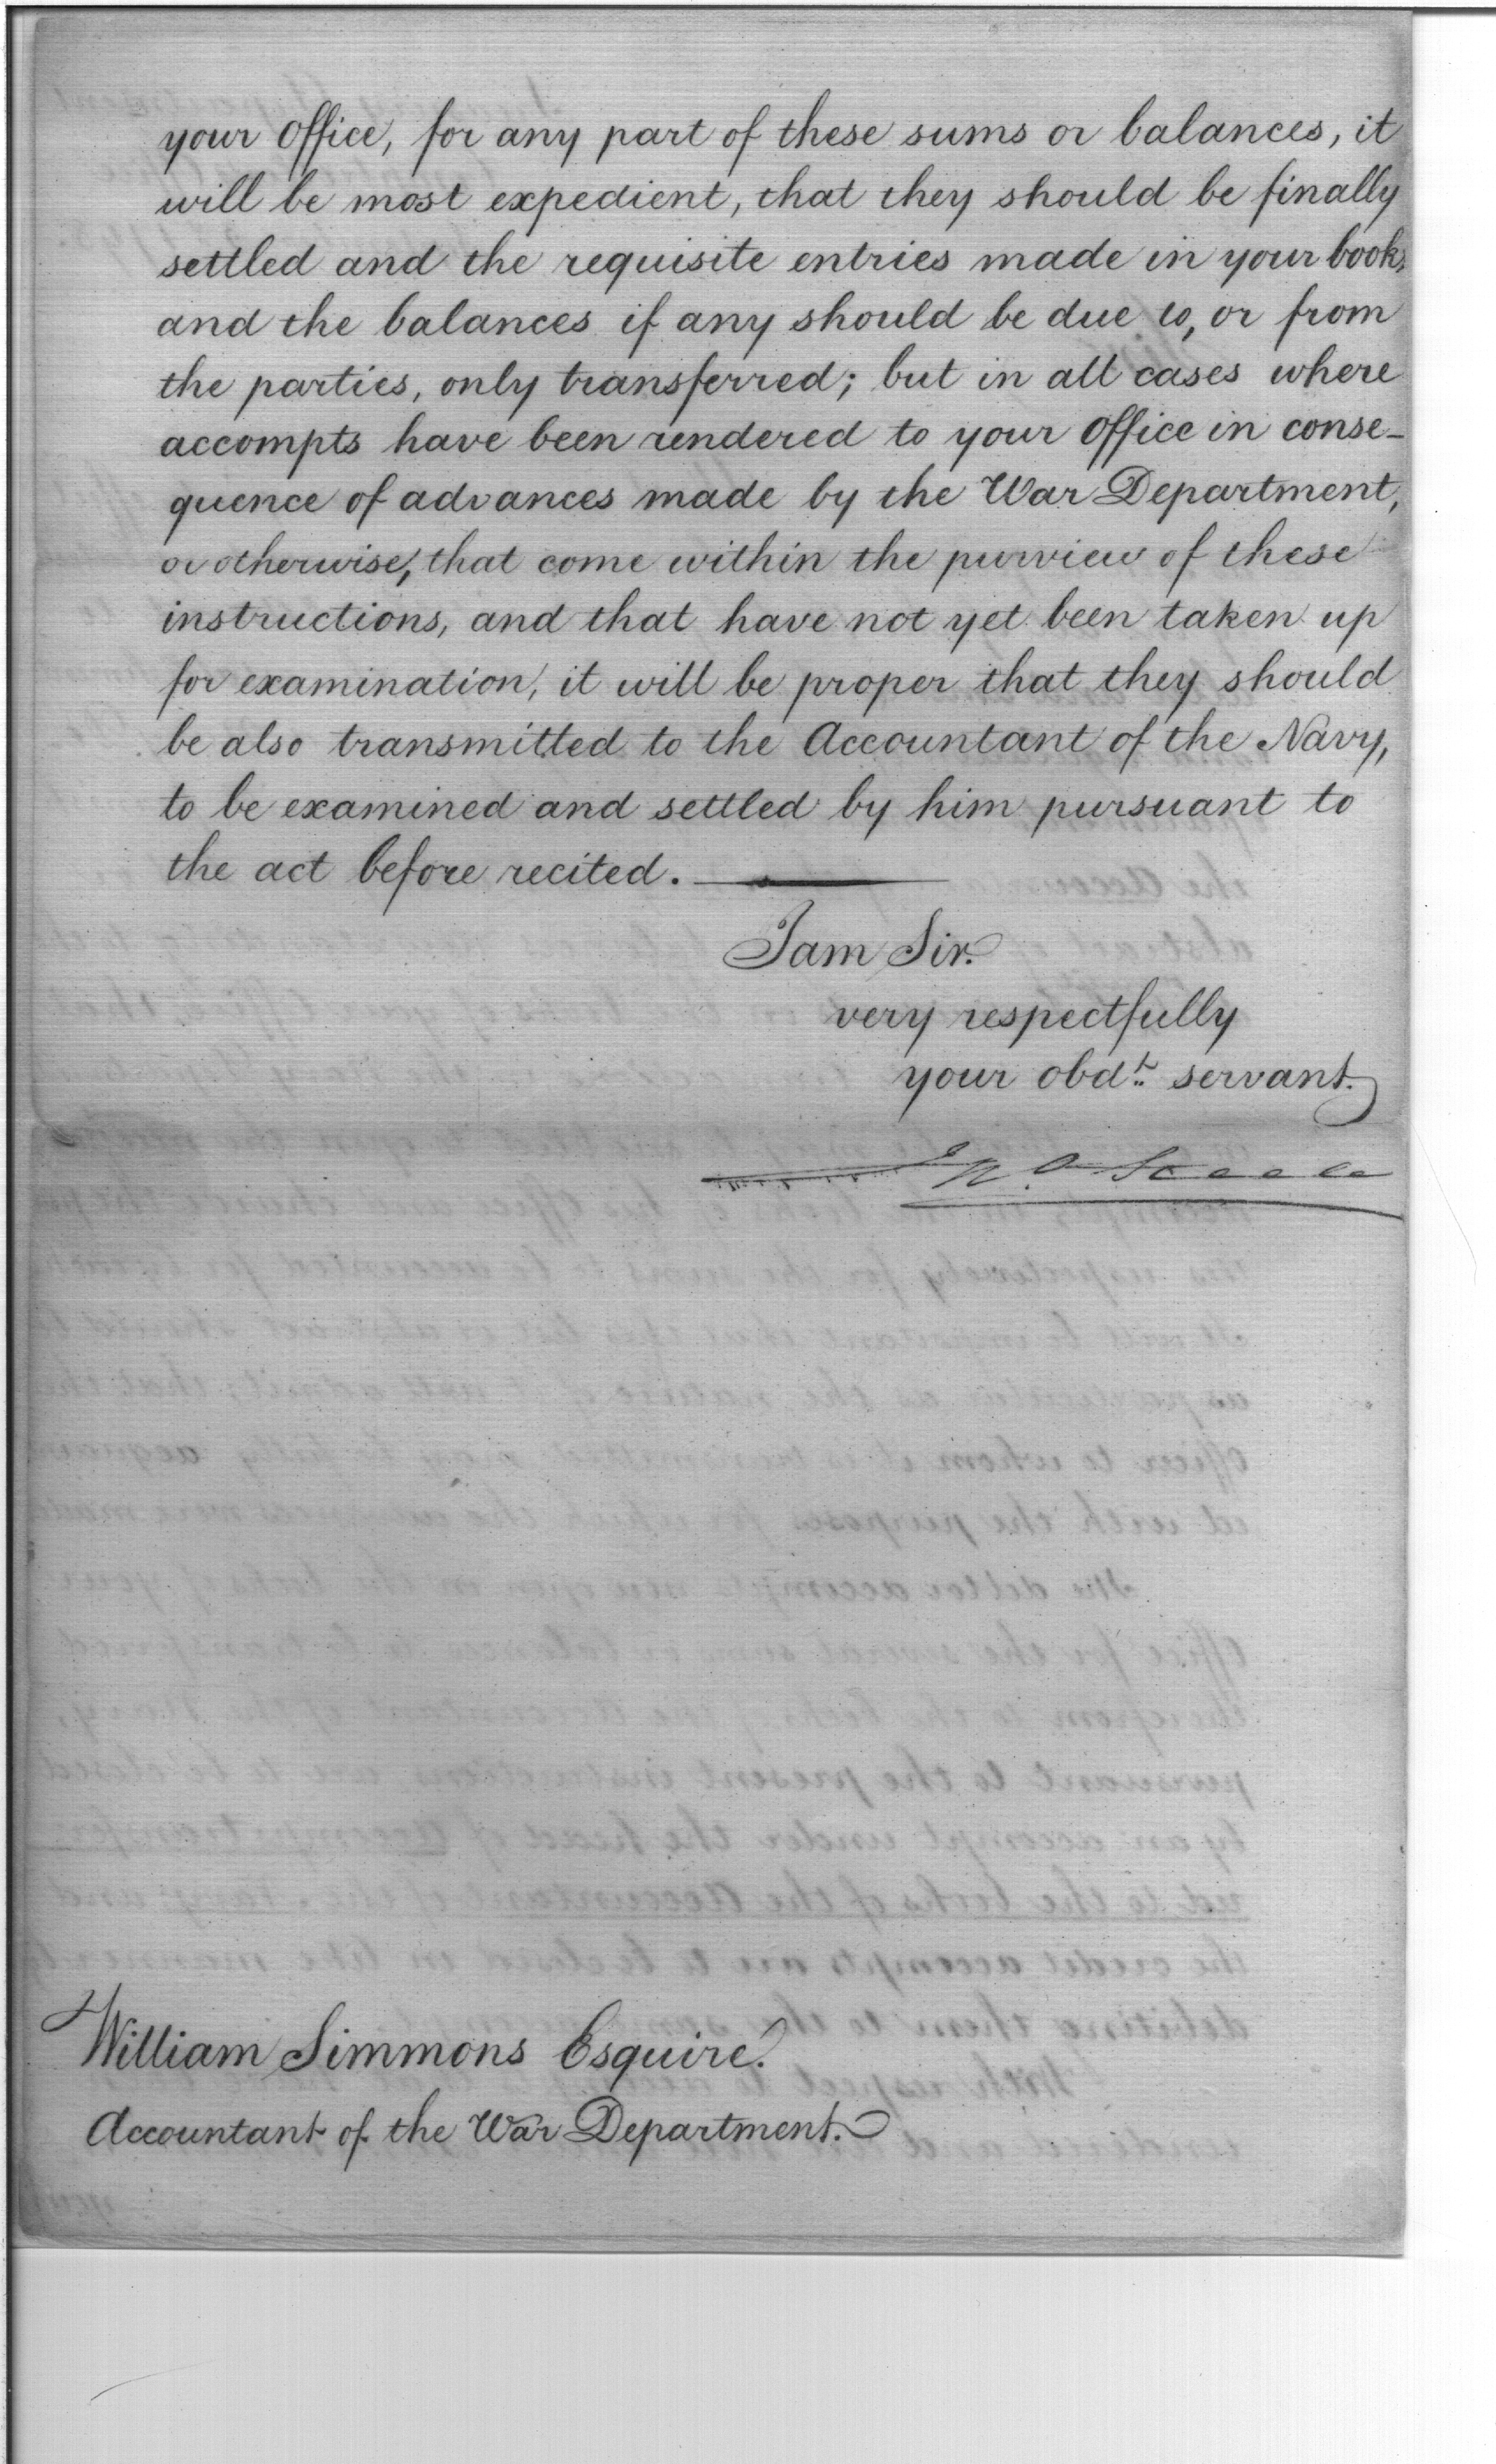 your Office, for any part of these sums or balances, it
will be most expedient, that they should be finally
settled and the requisite entries made in your books,
and the balances if any should be due to, or from
the parties, only transferred; but in all cases where
accompts have been rendered to your Office in conse-
quence of advances made by the War Department,
or otherwise, that come within the purview of these
instructions, and that have not yet been taken up
for examination, it will be proper that they should
be also transmitted to the Accountant of the Navy,
to be examined and settled by him pursuant to
the act before recited.
I am Sir.
very respectfully
your obdt. servant.
Jno. Steele
William Simmons Esquire.
Accountant of the War Department.